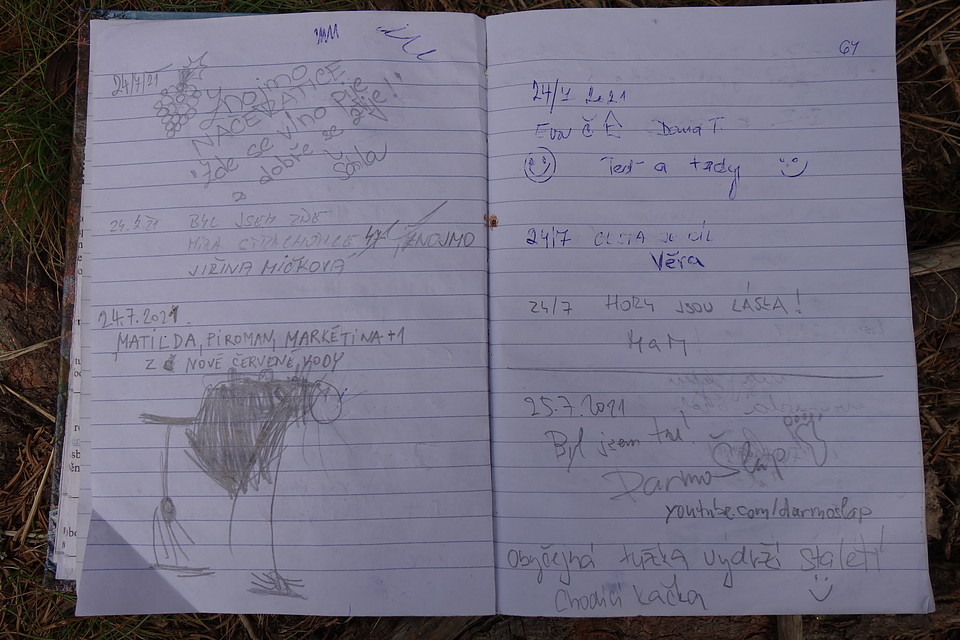 24/7/21
Znojmo
NAČERATICE
"Zde se víno pije
a dobře se žije!"
24.7.21 BYL JSEM ZDE
MÍRA CITACHOVICE ZNOJMO
JIŘINA MIČKOVA
24.7.2021.
MATILDA, PIROMAN, MARKÉTINA+1
Z NOVÉ ČERVENÉ VODY
61
24/7 2021
Eva Č Dana T.
Teď a tady
24/7 CESTA JE CÍL
Věra
24/7 HORY JSOU LÁSKA!
M a M
25.7.2021
Byl jsem tu!
Darmošlap
youtube.com/darmoslap
Obyčejná tužka vydrží staletí
Chodící kačka